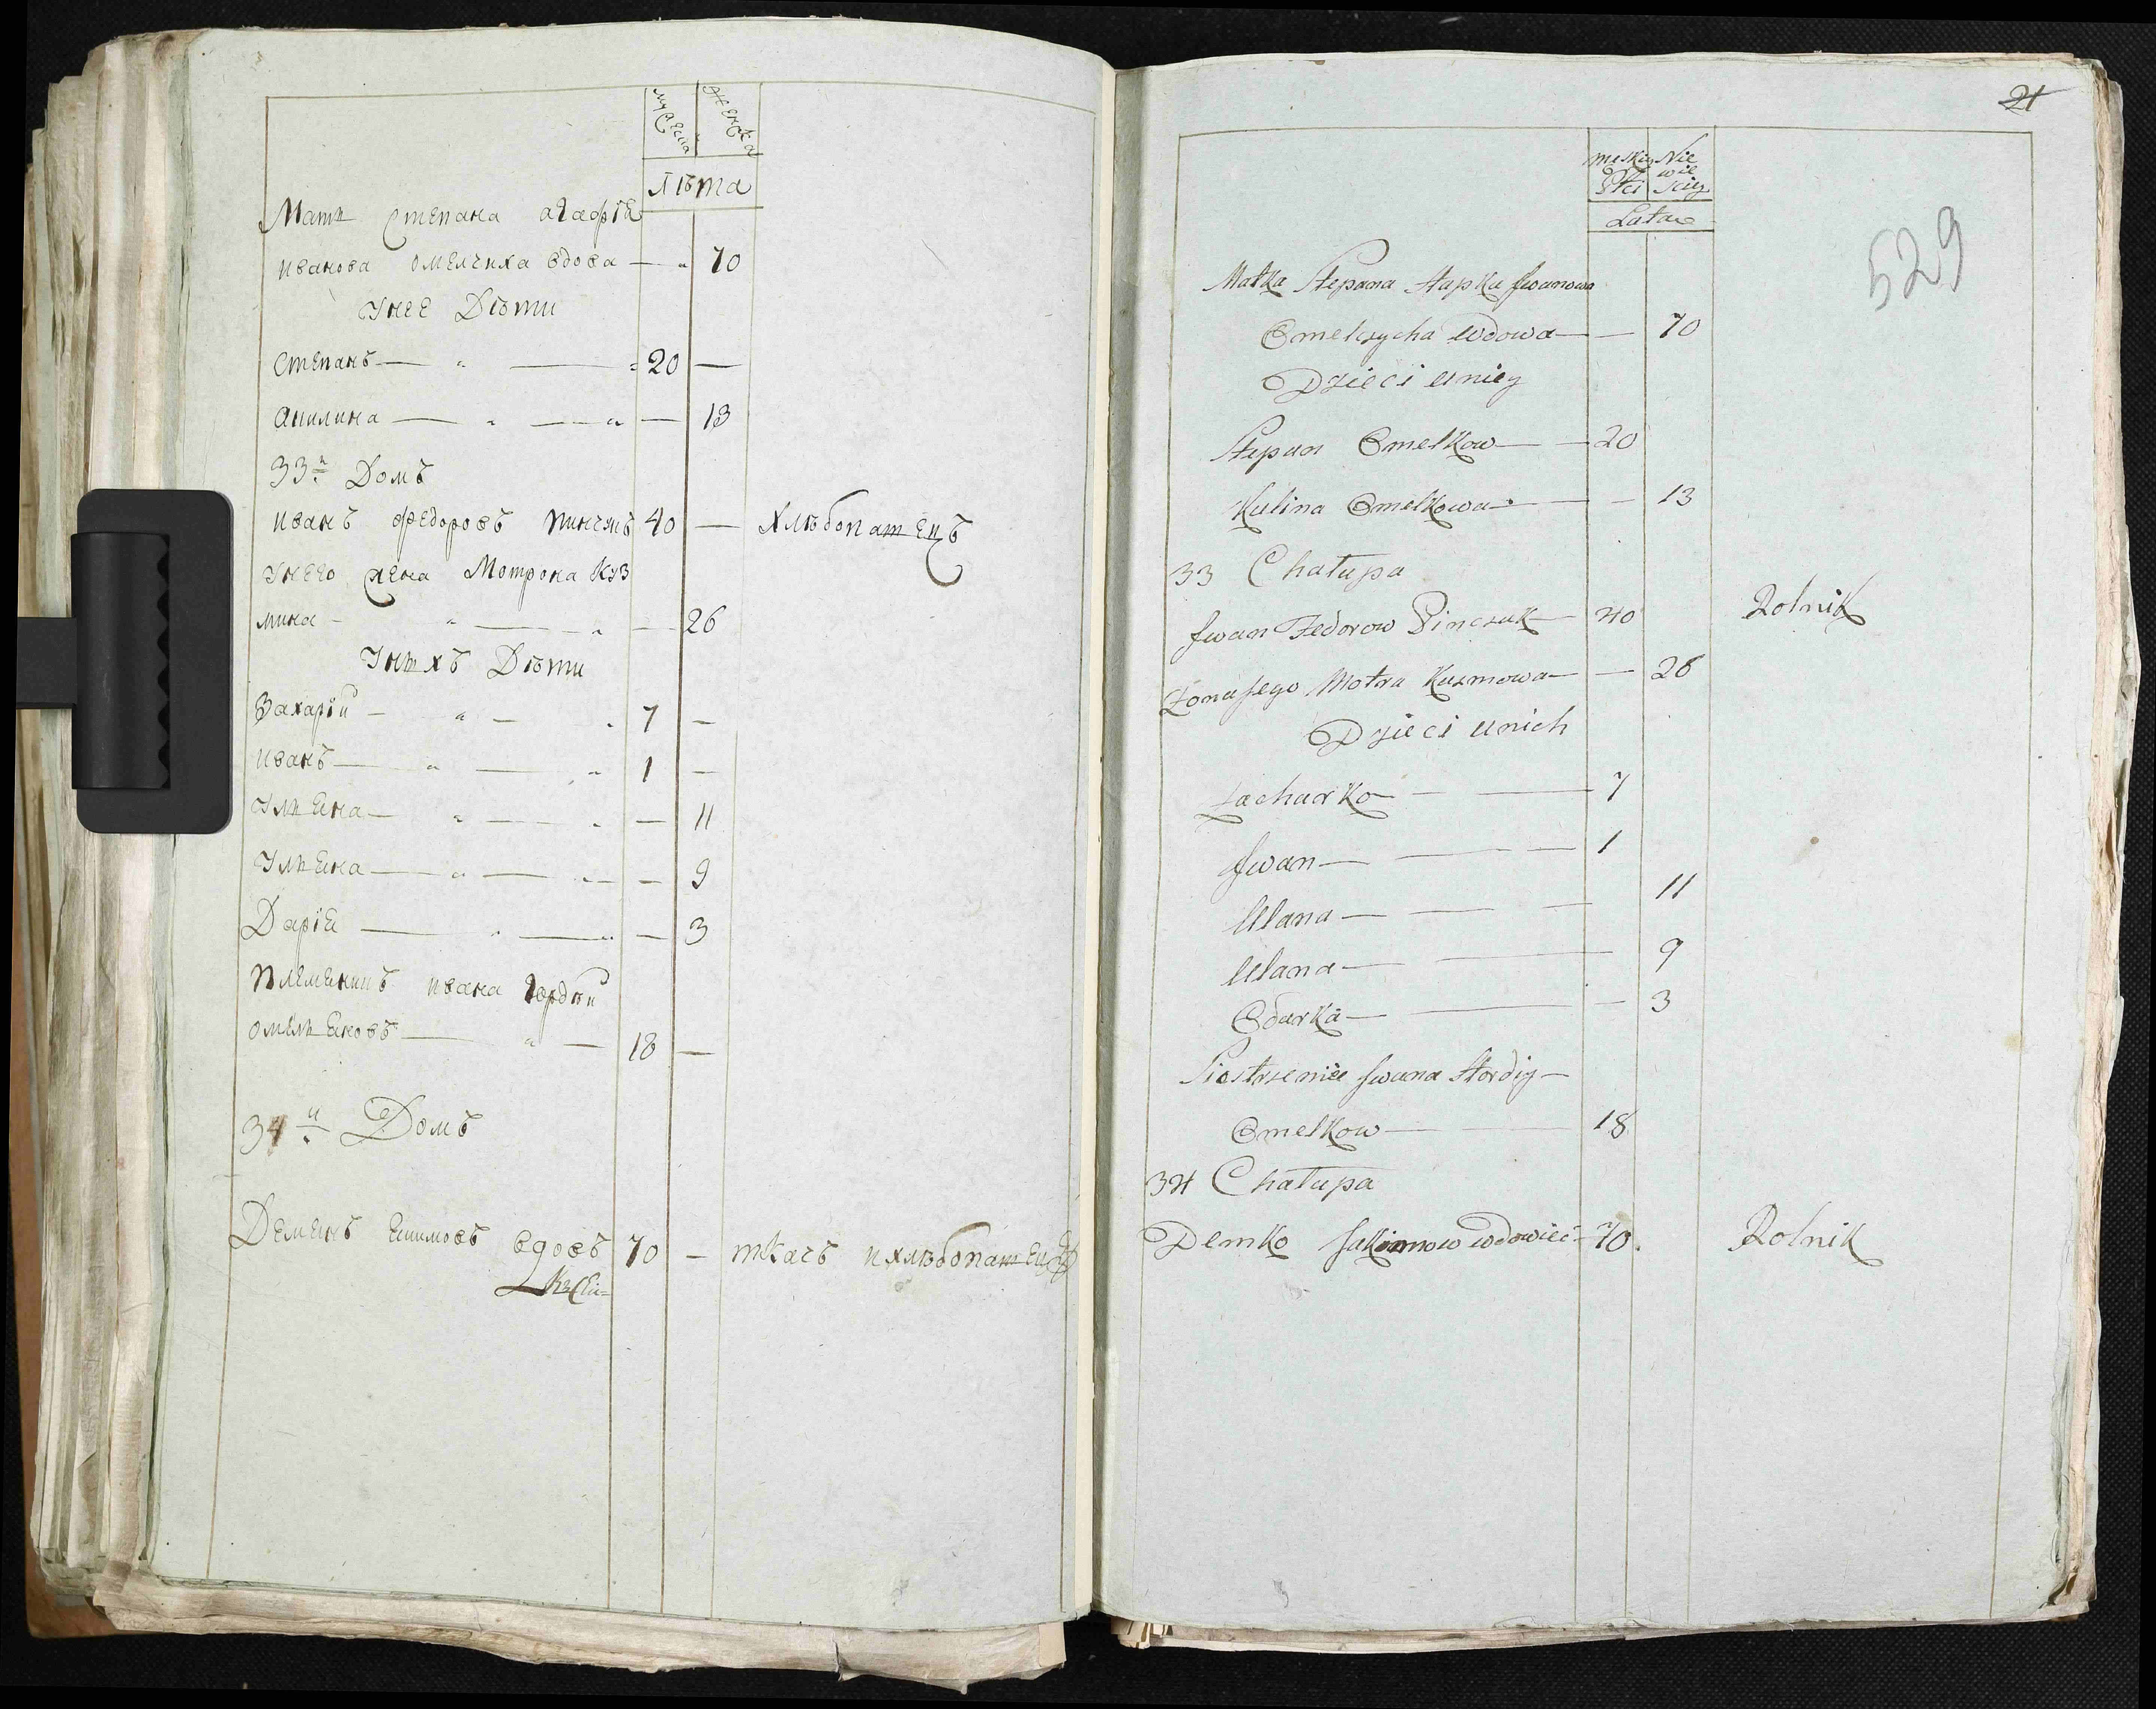 муска женска
лѣта
Мать Степана агафіѧ
иванова омелчиха вдова — „ 70
Унее Дѣти
степанъ — „ — 20 —
акилина — „ — „ — 13
33й Домъ
иванъ федоровъ пинчукъ 40 — хлѣбопашецъ
Унего жена Мотрона Куз
мина — „ — „ — 26
Унихъ Дѣти
Захарій — „ — 7 —
иванъ — „ — „ 1 —
Ульѧна — „ — 11
Ульѧна — „ — 9
Даріѧ — „ — 3
племѧникъ ивана гордѣй
омельѧновъ — „ — 18 —
34й Домъ
Демьѧнъ вдовъ 70 — ткачъ и хлѣбопашецъ
21
529
męskiey płci Niewiesciey
Lata
Matka Stepana Hapka Iwanowa
Omelczycha wdowa — — 70
Dzieci u niey
Stepan Omelkow — — 20
Kulina Omelkowa — — 13
33 Chałupa
Iwan Fedorow Pinczuk — 40 Rolnik
Żona jego Motra Kuzmowa — — 26
Dzieci u nich
Zacharko — — 7
Iwan — — — 1
Ulana — — — 11
Ulana — — 9
Odarka — — — 3
Siostrzeniec Iwana Hordiy —
Omelkow — — 18
34 Chałupa
Demko Jakimow wdowiec — 70. Rolnik